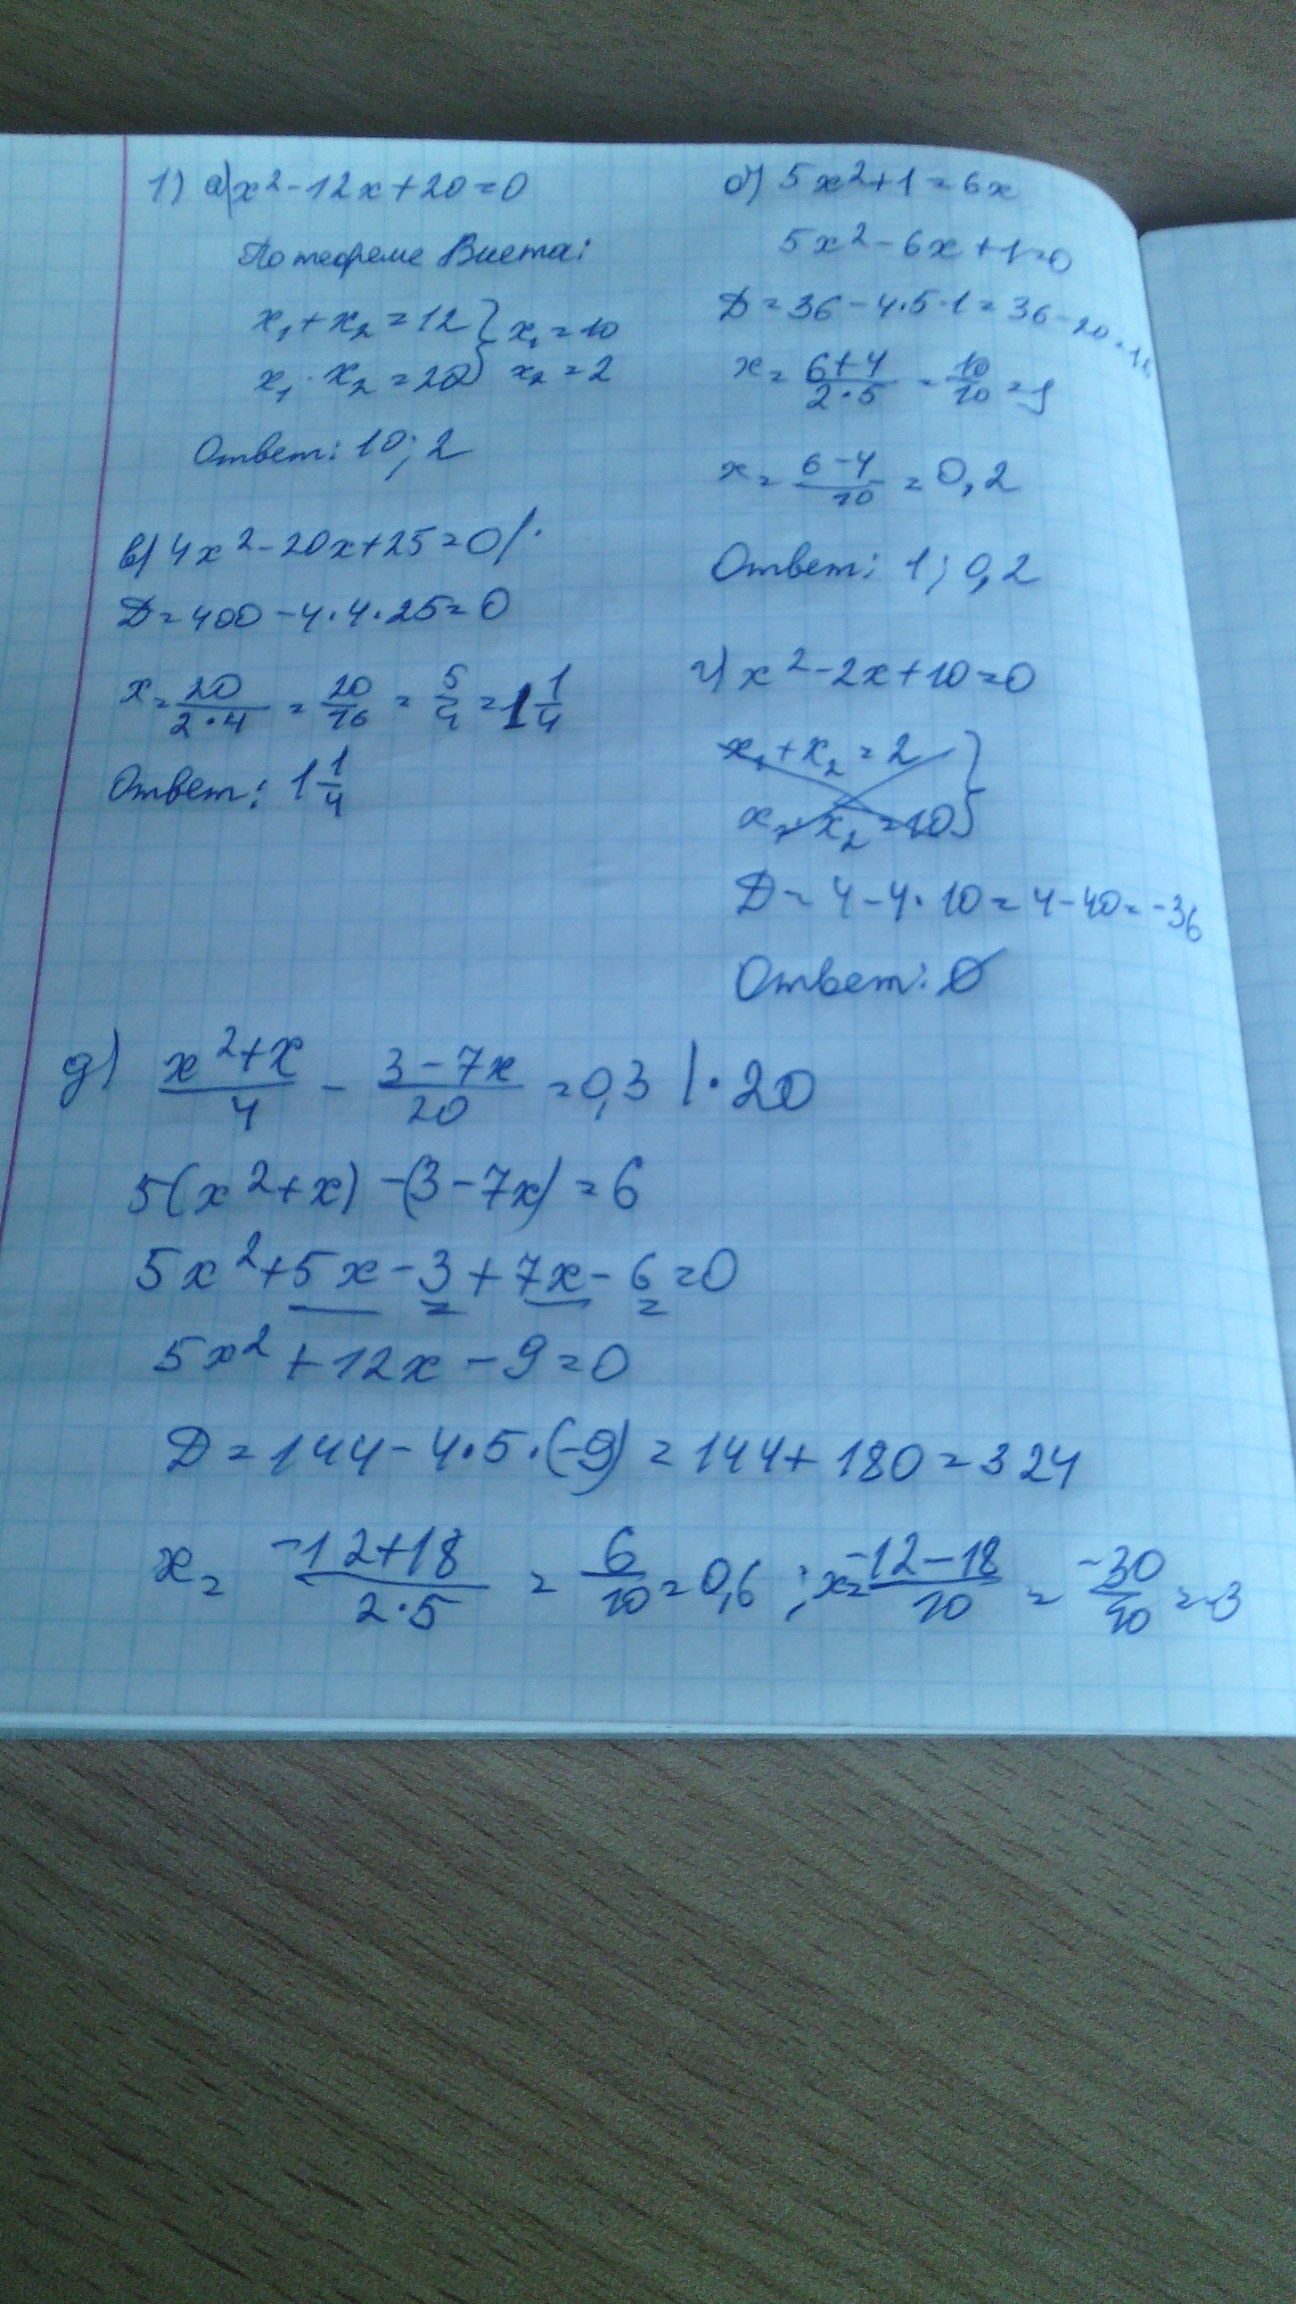 1) а) x²-12x+20=0
По теореме Виета:
x₁+x₂=12 } x₁=10
x₁·x₂=20 } x₂=2
Ответ: 10; 2
б) 5x²+1=6x
5x²-6x+1=0
D=36-4·5·1=36-20=16
x=(6+4)/(2·5)=10/10=1
x=(6-4)/10=0,2
Ответ: 1; 0,2
в) 4x²-20x+25=0/·
D=400-4·4·25=0
x=20/(2·4)=20/16=5/4=1 1/4
Ответ: 1 1/4
г) x²-2x+10=0
x₁+x₂=2 }
x₁·x₂=10 }
D=4-4·10=4-40=-36
Ответ: Ø
д) (x²+x)/4 - (3-7x)/20 =0,3 |·20
5(x²+x)-(3-7x)=6
5x²+5x-3+7x-6=0
5x²+12x-9=0
D=144-4·5·(-9)=144+180=324
x=(-12+18)/(2·5)=6/10=0,6; x=(-12-18)/10=-30/10=-3